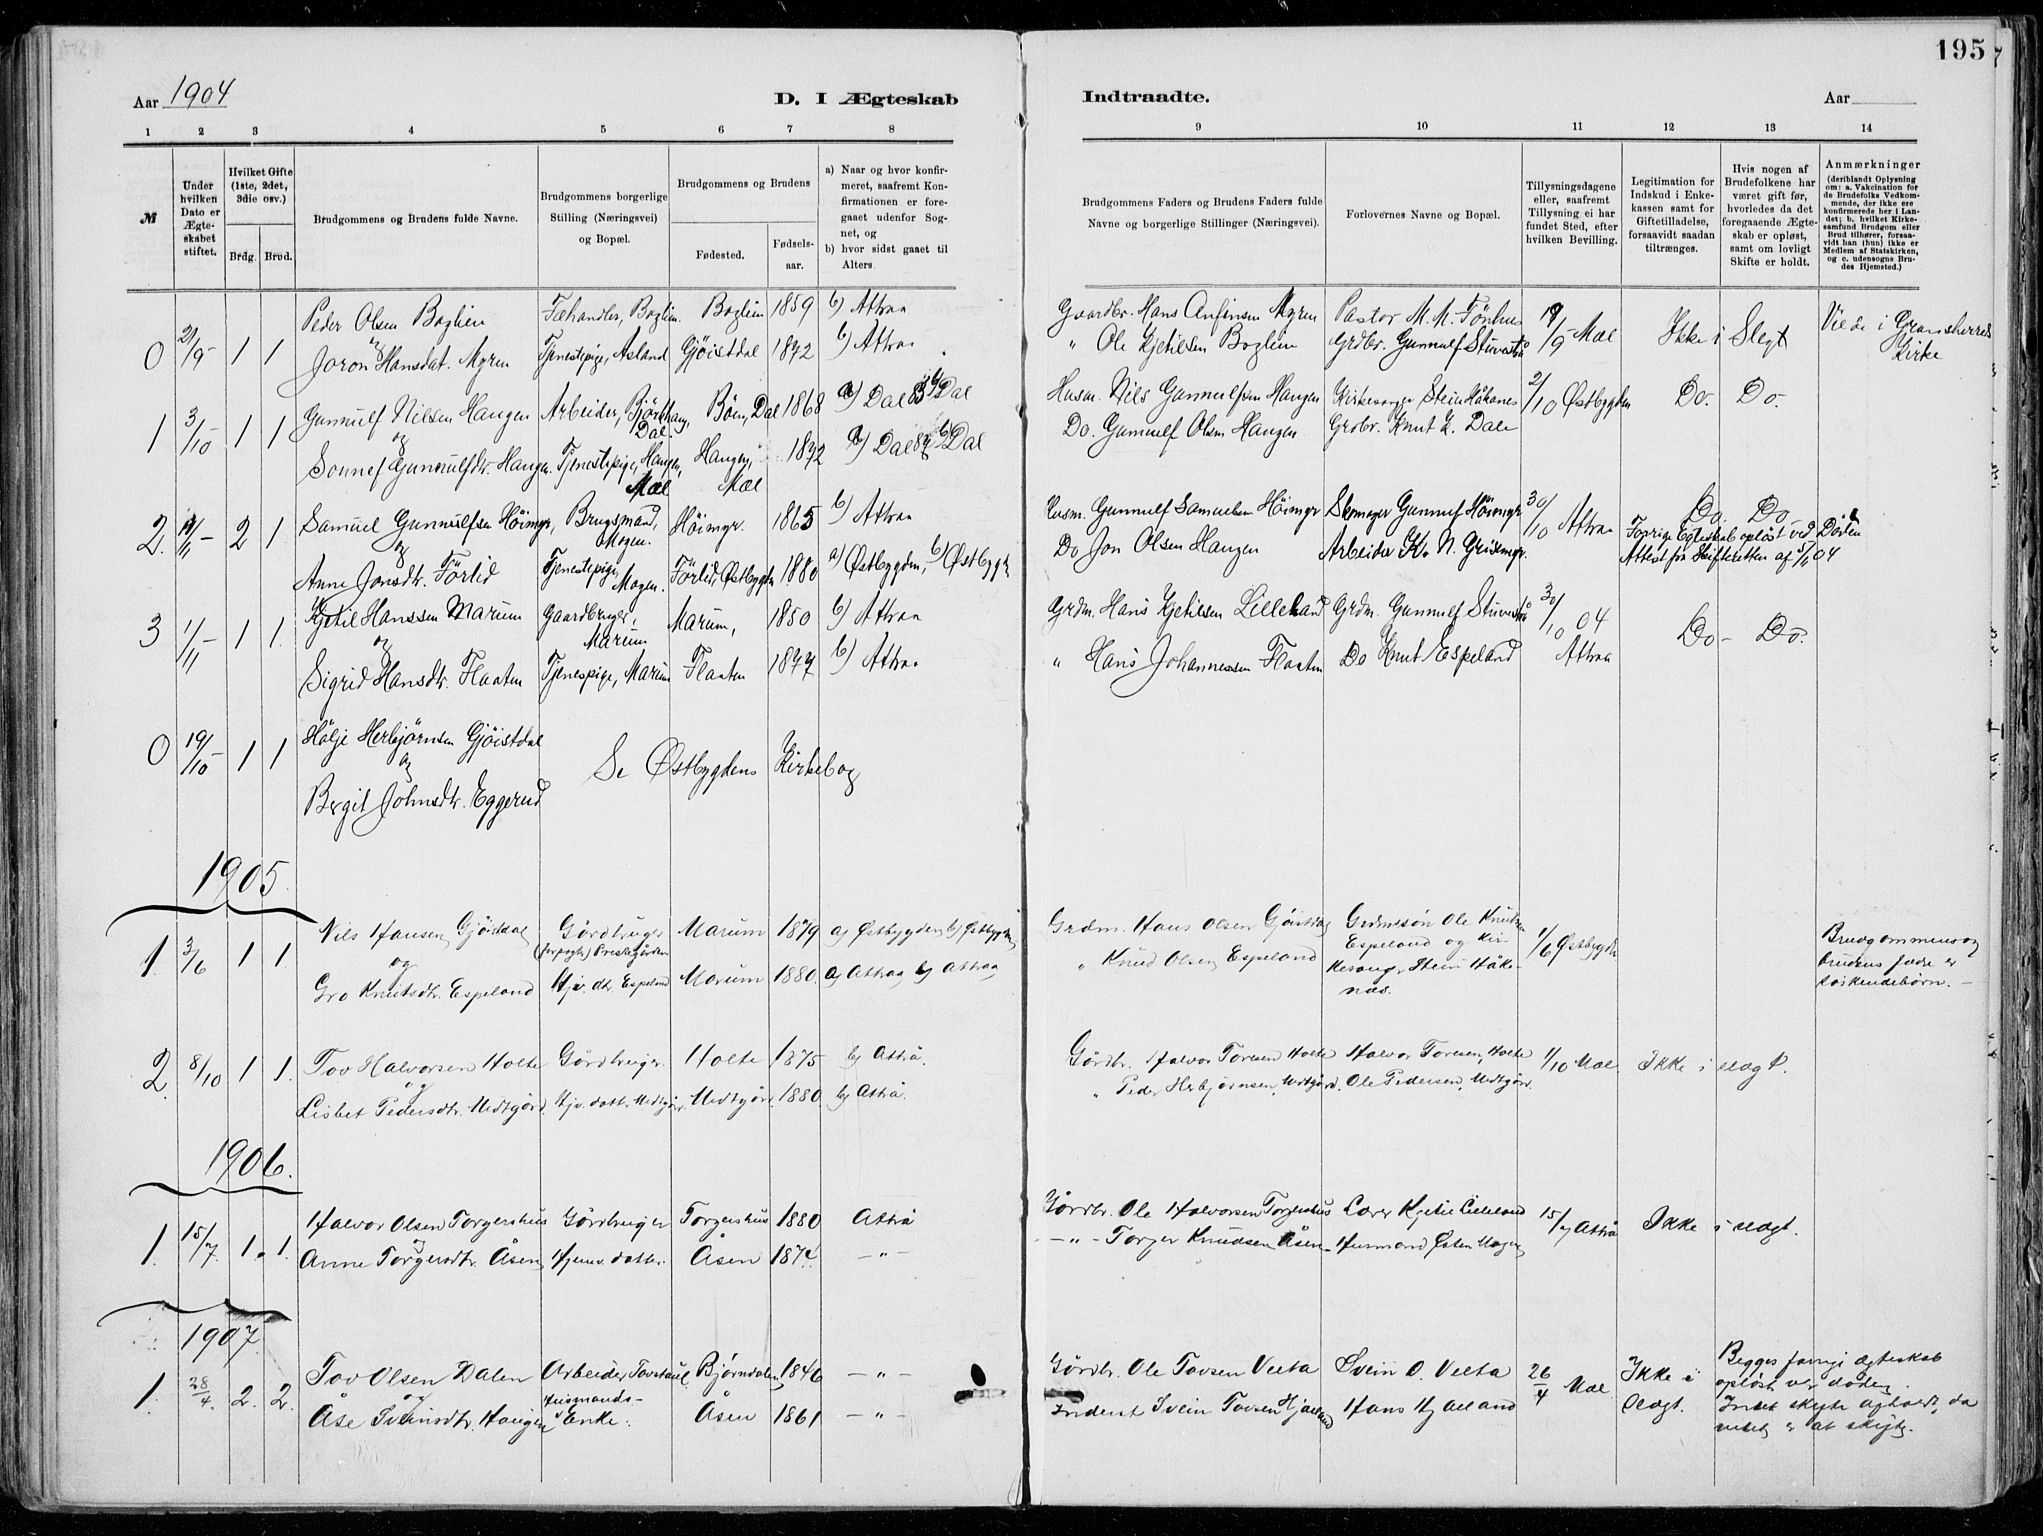 195
Aar 1904
D. I Ægteskab
Indtraadte.
Aar
1 2 3 4 5 6 7 8
9 10 11 12 13 14
№
Under hvilken Dato er Ægteskabet stiftet.
Hvilket Gifte (1ste, 2det, 3die osv.)
Brdg. Brud.
Brudgommens og Brudens fulde Navne.
Brudgommens borgerlige Stilling (Næringsvei) og Bopæl.
Brudgommens og Brudens
Fødested.
Fødselsaar.
a) Naar og hvor konfirmeret, saafremt Konfirmationen er foregaaet udenfor Sognet, og
b) hvor sidst gaaet til Alters.
Brudgommens Faders og Brudens Faders fulde Navne og borgerlige Stillinger (Næringsvei).
Forlovernes Navne og Bopæl.
Tillysningsdagene eller, saafremt Tillysning ei har fundet Sted, efter hvilken Bevilling.
Legitimation for Indskud i Enkekassen samt for Giftetilladelse, forsaavidt saadan tiltrænges.
Hvis nogen af Brudefolkene har været gift før, hvorledes da det foregaaende Ægteskab er opløst, samt om lovligt Skifte er holdt.
Anmærkninger
(deriblandt Oplysning om: a. Vakcination for de Brudefolks Vedkommende, der ikke ere konfirmerede her i Landet; b. hvilket Kirkesamfund Brudgom eller Brud tilhører, forsaavidt han (hun) ikke er Medlem af Statskirken, og c. udensogns Brudes Hjemsted.)
0 21/9- 1 1 Peder Olsen Boglien Fæhandler, Boglien. Boglien 1859 b) Attraa Gaardbr. Hans Anfinsen Myren Pastor M. M. Fönhus 19/9- Mæl Ikke i Slegt Viede i Gransherred Kirke
og
Joron Hansdat. Myren Tjenestepige, Asland Gjöistdal 1872 b) Attraa " Ole Kjetilsen Boglien Grdbr. Gunnulf Stuverså
1 3/10- 1 1 Gunnulf Nilsen Haugen Arbeider, Dal Böen, Dal 1868 a) Dal 83 b) Dal Husm. Nils Gunnulfsen Haugen Kirkesanger Stein Håkanes 2/10 Østbygden Do. Do.
og
Sonnef Gunnulfdr. Haugen. Tjenestepige, Haugen, Mæl Haugen, Mæl 1872 a) Dal 87 b) Dal Do. Gunnulf Olsen Haugen Grdbr. Knut K. Dale
2. 1/11- 2 1 Samuel Gunnulfsen Höimyr, Brugsmand, Mogen. Höimyr. 1865 b) Attraa Husm. Gunnulf Samuelsen Höimyr Skomager Gunnulf Höimyr 30/10 Attraa Do. Do.
og
Anne Jonsdtr. Förlid Tjenestepige, Mogen. Förlid, Østbygden 1880 a) Østbygden, b) Østbygden Do Jon Olsen Haugen Arbeider
Forrige Egteskab oplöst ved Döden
Attest fra Skifteretten af 5/11 04
3 1/11- 1 1. Kjetil Hanssen Marum Gaardbruger, Marum Marum, 1850 b) Attraa Grdm. Hans Kjetilsen Lilleland Grdm. Gunnulf Stuverså 30/10 04 Attraa Do- Do.
og
Sigrid Hansdtr. Flaaten Tjenespige, Marum Flaaten 1877 b) Attraa " Hans Johannessen Flaaten Do Knut Espeland
0 19/10- 1 1 Hölje Herbjörnsen Gjöistdal
og
Se Østbygdens Kirkebog
Bergit Johnsdtr. Eggerud
1905
1. 3/6 1 1 Nils Hansen Gjöistdal Gårdbruger (forpagter) Prestegården Marum 1879 a) Østbygden b) Østbygden Grdm. Hans Olsen Gjöistdal Grdmssön Ole Knutsen Espeland og Kirkesang. Stein Håkanæs. 1/6 Østbygden
og
Gro Knutsdtr. Espeland Hjv. dtr. Espeland Marum 1880. a) Attraa b) Attraa " Knud Olsen Espeland
Brudgommens og brudens fædre er söskendebörn. -
2. 8/10 1 1. Tov Halvorsen Holte Gårdbruger Holte 1875 b) Attrå. Gårdbr. Halvor Tovsen Holte Halvor Tovsen, Holte 1/10 Mæl Ikke i slægt.
og
Lisbet Pedersdtr. Medtgård. Hjv. datt. Medtgård. Medtgård. 1880 b) Attrå. " Peder Herbjörnsen, Medtgård. Ole Pedersen, Medtgård.
1906.
1. 15/7. 1. 1. Halvor Olsen Torgershus Gårdbruger Torgershus 1880 Attrå Gårdbr. Ole Halvorsen Torgershus Lærer Kjetil Lilleland 15/7 Attrå Ikke i slægt.
og
Anne Torgersdtr. Åsen Hjemv. datter. Åsen 1874. - " - - " - Torger Knudsen Åsen Husmand Østen Mogen
1907
1. 28/4. 2. 2. Tov Olsen Dalen Arbeider Tovstaul Bjørndalen 1846 - " - Gårdbr. Ole Tovsen Veeta Svein O. Veeta 26/4 Mæl Ikke i slægt. Begges forrige ægteskab oplöst ved döden.
og
Åse Sveinsdtr. Haugen Husmands-Enke. Åsen 1861 - " - Inderst Svein Tovsen Hjaaland Hans Hjaaland
Intet skifte afholdt, da intet er at skifte.